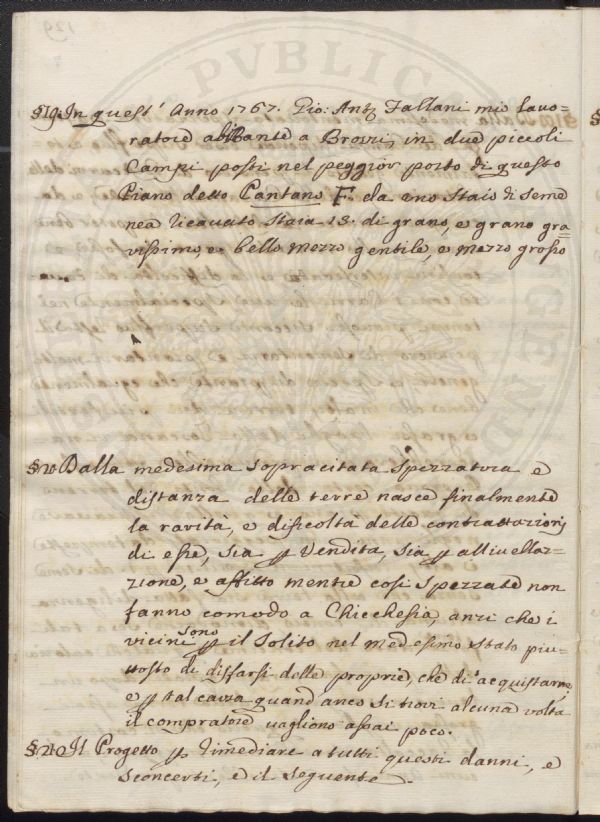 129
PVBLICA
GEND
§19. In quest' Anno 1767. Gio: Antº Fallani mio lavo=
ratore abitante a Brozzi, in due piccoli
Campi posti nel peggior posto di questo
Piano detto Pantano F. da uno Staio di seme
nea ricavato Staia 13. di grano, e grano gra=
vissimo, e bello mezzo gentile, e mezzo grosso
§20 Dalla medesima sopracitata spezzatura e
distanza delle terre nasce finalmente
la rarità, e dificoltà delle contrattazioni
di esse, sia p vendita, sia p allivellaz=
zione, e affitto mentre così spezzate non
fanno comodo a Chicchesia, anzi che i
vicini sono p il solito nel medesimo stato piu=
ttosto di disfarsi delle proprie, che di acquistarne
e p tal causa quand' anco si trovi alcuna volta
il compratore vagliono assai poco.
§21 Il Progetto p rimediare a tutti questi danni, e
sconcerti, è il seguente.